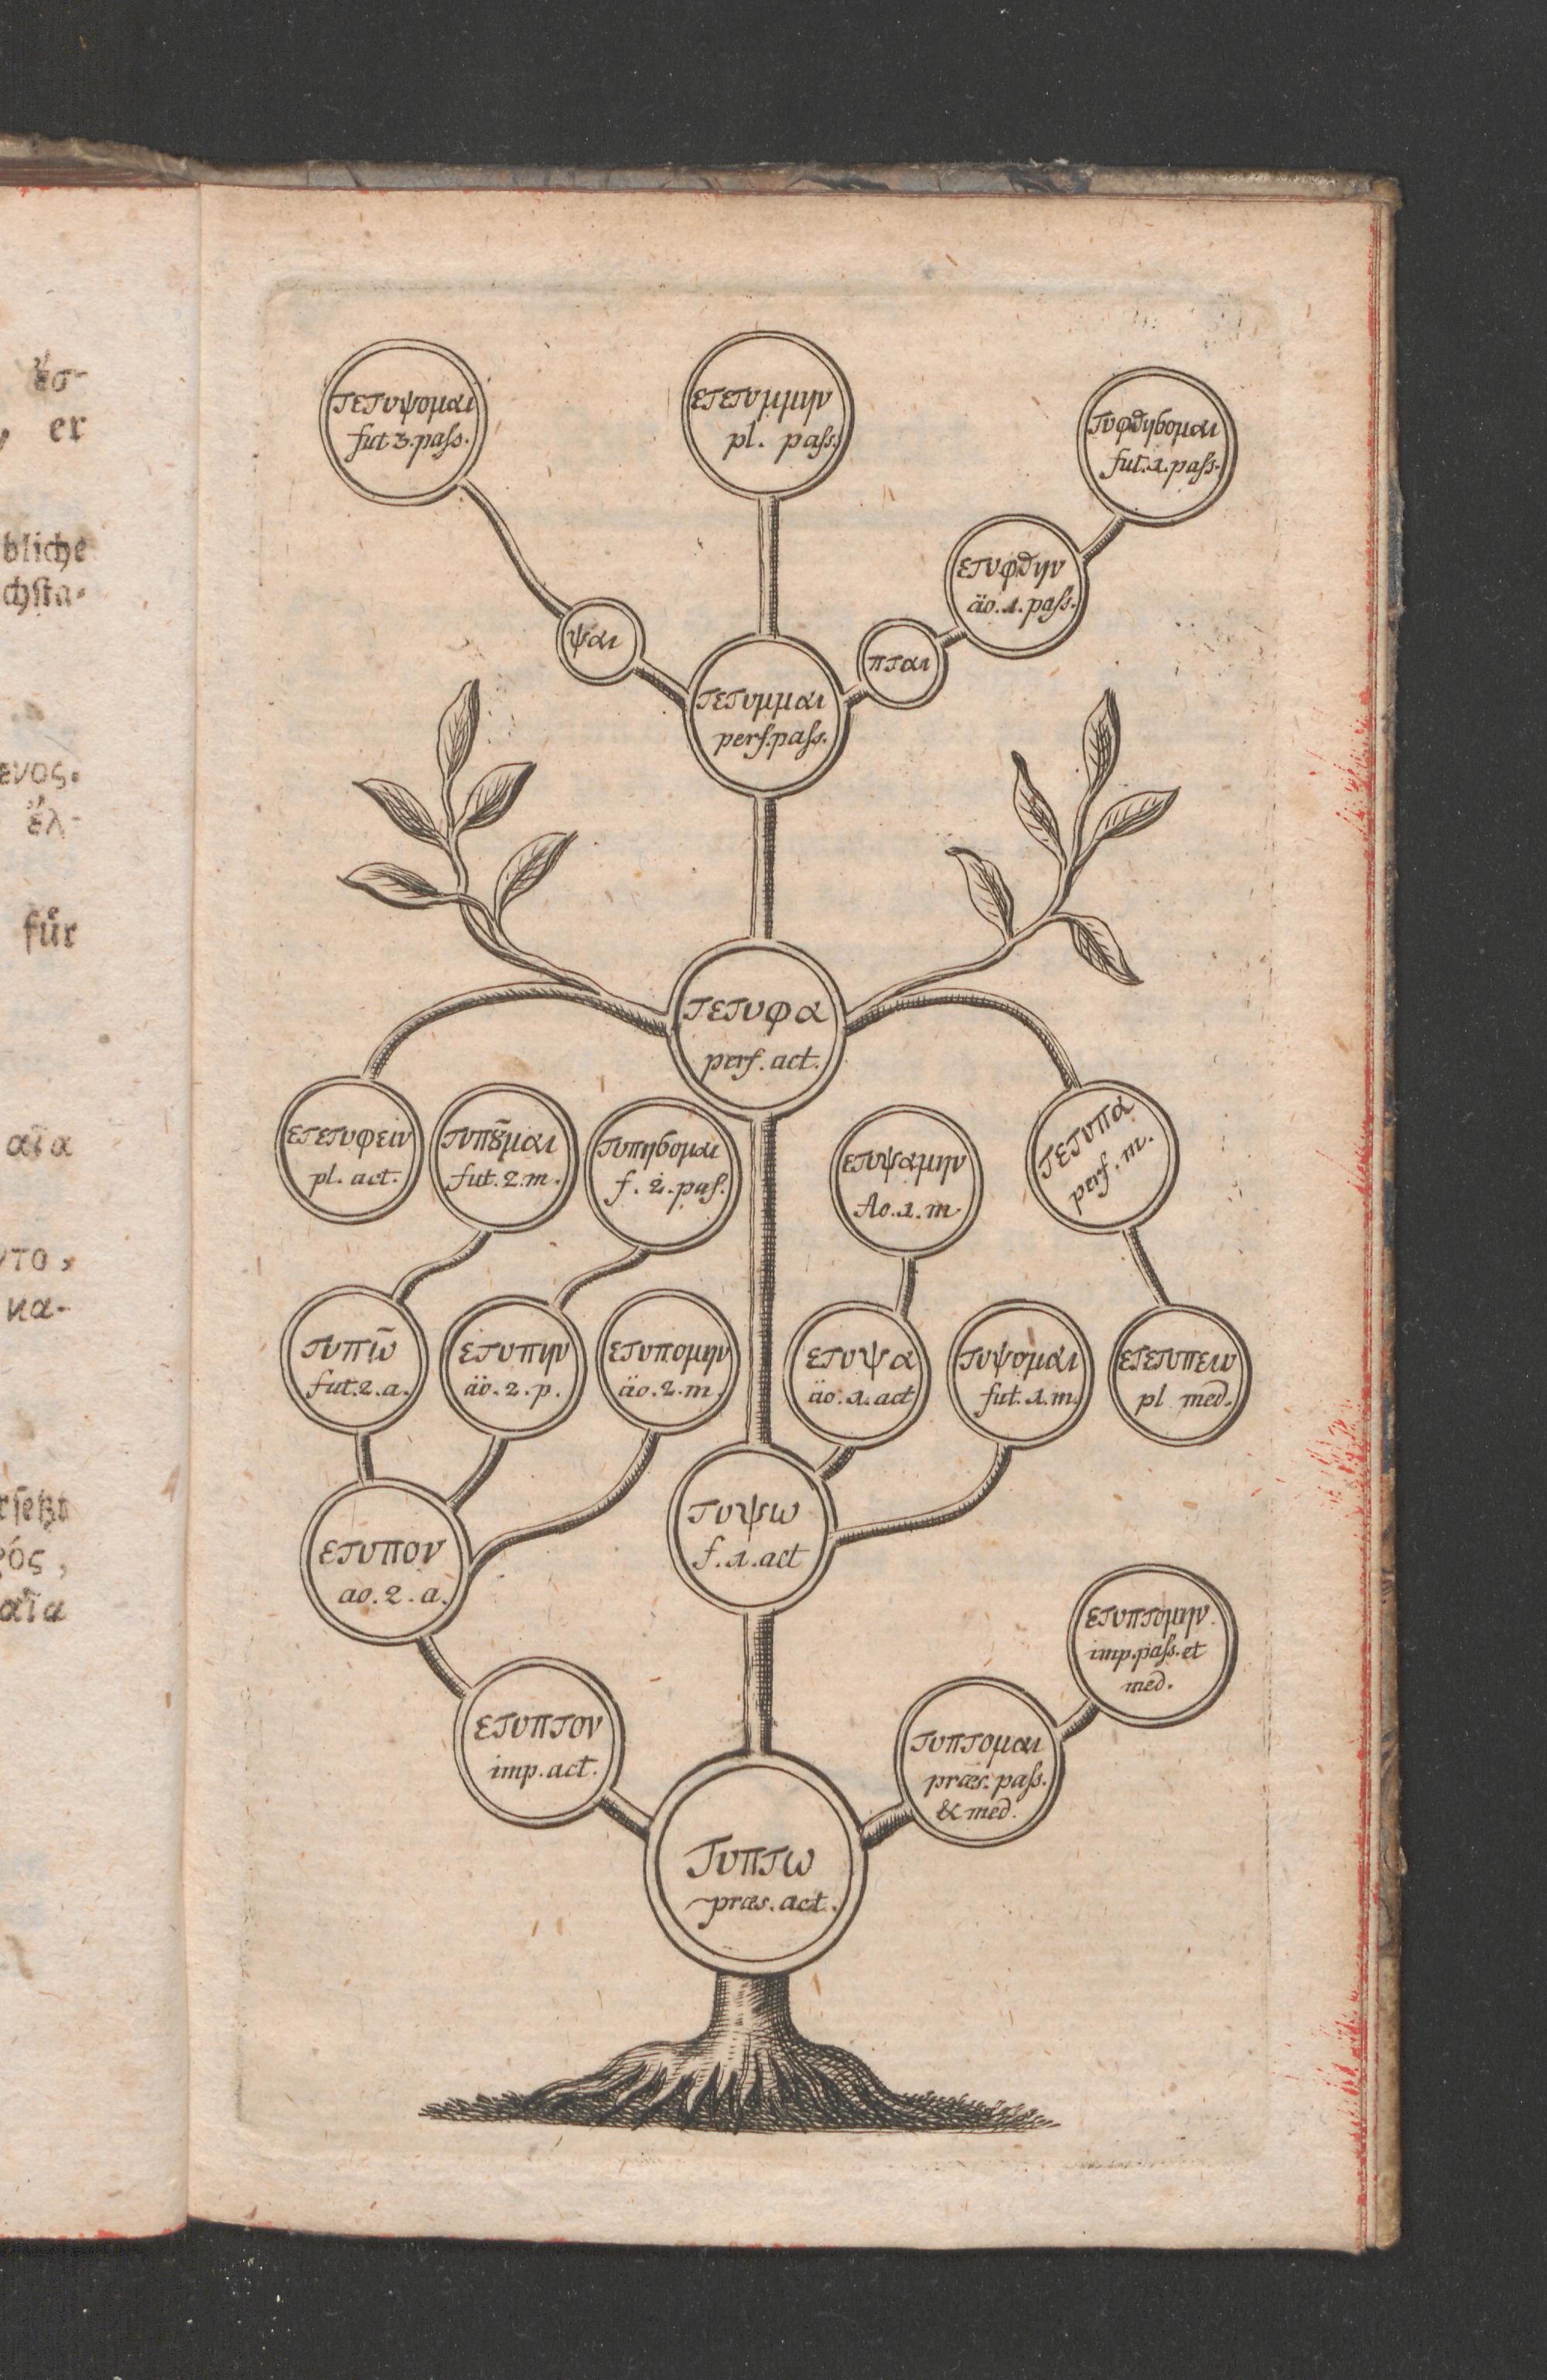 ἔσ-
er
bliche
chſta-
ενος.
ἔλ-
für
αῖα
ντο,
κα-
rſetzt
ρός,
αῖα
τετυψομαι
fut 3. paſs.
ετετυμμην
pl. paſs.
τυφθησομαι
fut. 1. paſs.
ετυφθην
äo. 1. paſs.
ψαι
πται
τετυμμαι
perf. paſs.
τετυφα
perf. act.
ετετυφειν
pl. act.
τυπȣ͂μαι
fut. 2. m.
τυπησομαι
f. 2. paſ.
ετυψαμην
Ao. 1. m.
τετυπα
perf. m.
τυπῶ
fut. 2. a.
ετυπην
äo. 2. p.
ετυπομην
äo. 2. m.
ετυψα
äo. 1. act
τυψομαι
fut. 1. m.
ετετυπειν
pl med.
ετυπον
ao. 2. a.
τυψω
f. 1. act
ετυπτομην
imp. paſs. et
med.
ετυπτον
imp. act.
τυπτομαι
præs. paſs.
& med.
Τυπτω
præs. act.